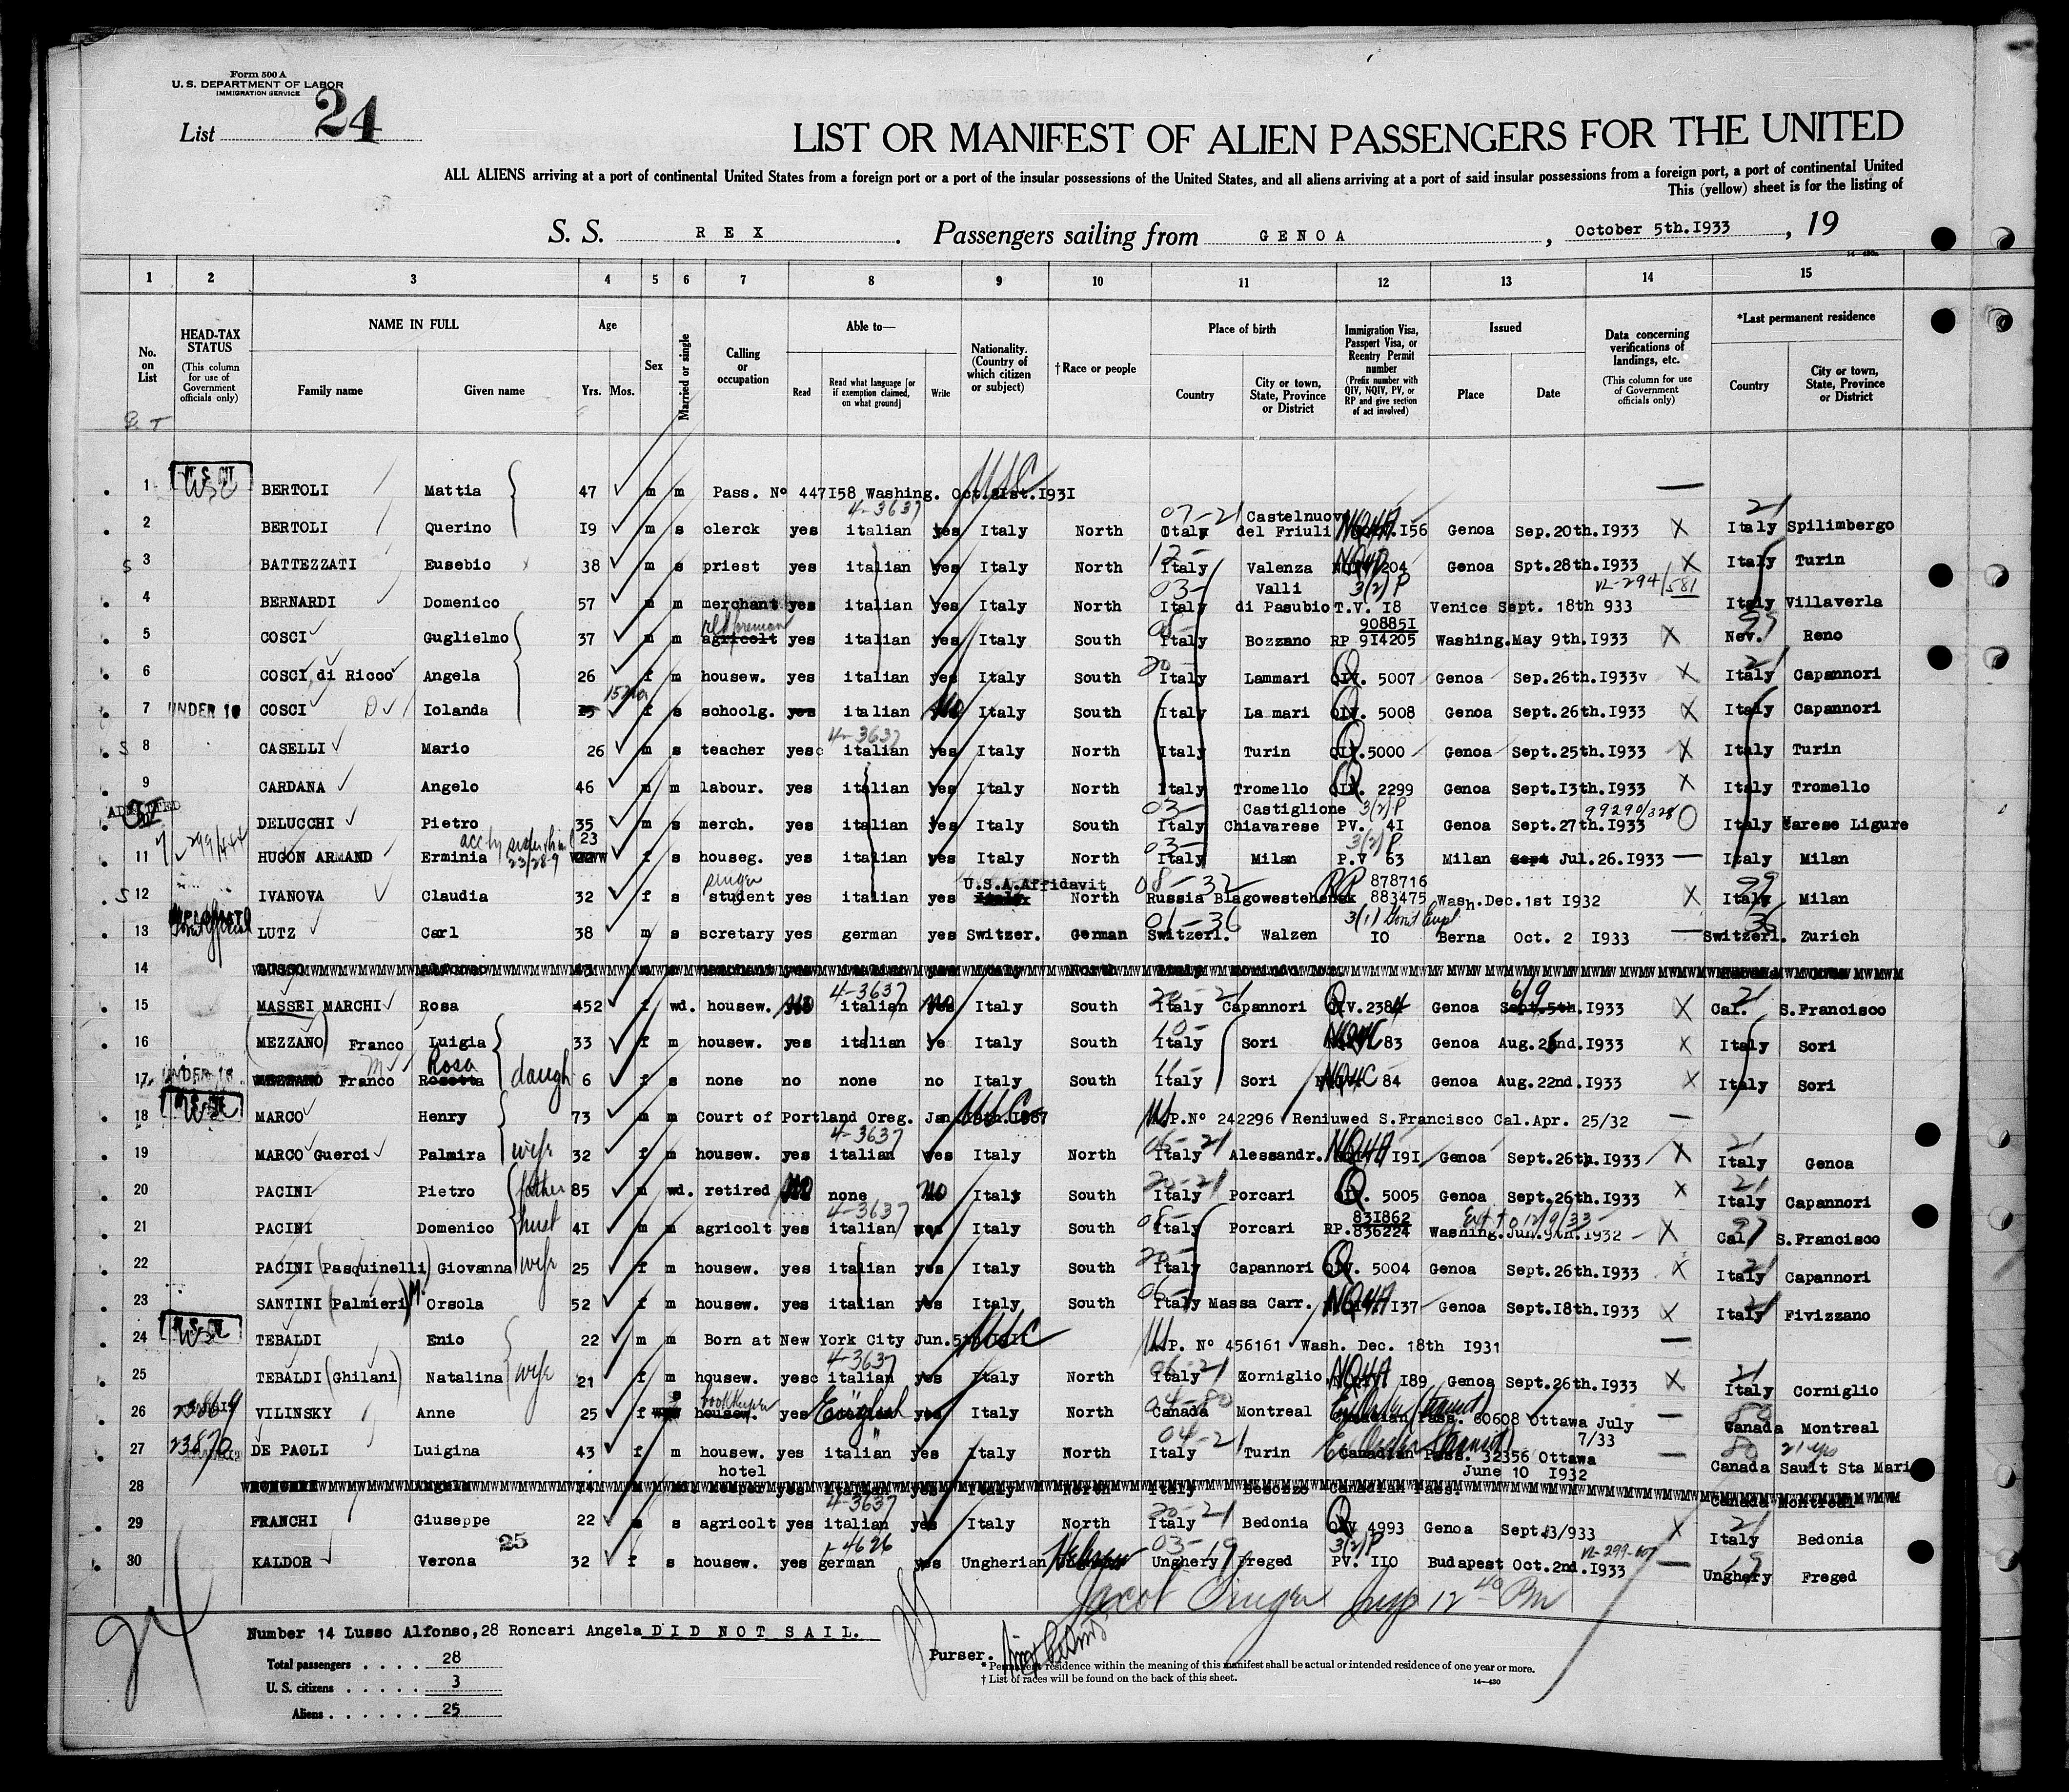 Form 500 A
U. S. DEPARTMENT OF LABOR
IMMIGRATION SERVICE
List 24
LIST OR MANIFEST OF ALIEN PASSENGERS FOR THE UNITED
ALL ALIENS arriving at a port of continental United States from a foreign port or a port of the insular possessions of the United States, and all aliens arriving at a port of said insular possessions from a foreign port, a port of continental United
This (yellow) sheet is for the listing of
S. S. REX. Passengers sailing from GENOA, October 5th.I933, 19
1 2 3 4 5 6 7 8 9 10 11 12 13 14 15
No. on List
HEAD-TAX STATUS (This column for use of Government officials only)
NAME IN FULL Family name Given name
Age Yrs. Mos.
Sex
Married or single
Calling or occupation
Able to— Read Read what language [or if exemption claimed, on what ground] Write
Nationality. (Country of which citizen or subject)
†Race or people
Place of birth Country City or town, State, Province or District
Immigration Visa, Passport Visa, or Reentry Permit number (Prefix number with QIV, NQIV, PV, or RP and give section of act involved)
Issued Place Date
Data concerning verifications of landings, etc. (This column for use of Government officials only)
*Last permanent residence Country City or town, State, Province or District
1 U.S. CIT USC BERTOLI Mattia 47 m m Pass. Nº 447I58 Washing. Oct.2Ist.I93I USC
2 BERTOLI Querino I9 m s clerck yes 4-3637 italian yes Italy North 07-21 Italy Castelnuovo del Friuli NQ4A I56 Genoa Sep.20th.I933 X 21 Italy Spilimbergo
3 BATTEZZATI Eusebio 38 m s priest yes italian yes Italy North 12- Italy Valenza 204 Genoa Spt.28th.I933 X Italy Turin
4 BERNARDI Domenico 57 m m merchant yes italian yes Italy North 03- Italy Valli di Pasubio 3(2)P T.V. I8 Venice Sept. 18th 933 Italy Villaverla
5 COSCI Guglielmo 37 m m agricolt yes italian yes Italy South Italy Bozzano 90885I RP 9I4205 Washing. May 9th.I933 X Nev. Reno
6 COSCI di Ricco Angela 26 f m housew. yes italian yes Italy South 20- Italy Lammari QIV. 5007 Genoa Sep.26th.I933v X 21 Italy Capannori
7 UNDER 16 COSCI Iolanda f s schoolg. yes italian no Italy South Italy La mari QIV. 5008 Genoa Sept.26th.I933 X Italy Capannori
8 CASELLI Mario 26 m s teacher yesc 4-3637 italian yes Italy North Italy Turin QIV.5000 Genoa Sept.25th.I933 X Italy Turin
9 CARDANA Angelo 46 m m labour. yes italian yes Italy North Italy Tromello QIV. 2299 Genoa Sept.I3th.I933 X Italy Tromello
ADMITTED DELUCCHI Pietro 35 m s merch. yes italian yes Italy South 03- Italy Castiglione Chiavarese 3(2)P PV. 4I Genoa Sept.27th.I933 Italy Varese Ligure
11 HUGON ARMAND Erminia 23 f s houseg. yes italian yes Italy North 03- Italy Milan 3(2)P P.V 63 Milan Jul.26.I933 Italy Milan
12 IVANOVA Claudia 32 f s singer student yes italian yes U.S.A.Affidavit North 08-32 Russia Blagowestehensk RP 878716 883475 Wash.Dec.1st I932 X 99 Italy Milan
13 LUTZ Carl 38 m s scretary yes german yes Switzer. German 01-36 Switzerl. Walzen 3(1) Gov't Empl IO Berna Oct. 2 I933 36 Switzerl. Zurich
14
15 MASSEI MARCHI Rosa 452 f wd. housew. no 4-3637 italian no Italy South 20-21 Italy Capannori QIV.2384 Genoa 6/9 Sept.5th.I933 X 21 Cal. S.Francisco
16 MEZZANO Franco Luigia 33 f m housew. yes italian ye Italy South 10- Italy Sori 83 Genoa Aug.22nd.I933 X Italy Sori
17 UNDER 16 MEZZANO Franco Rosa Rosetta daugh 6 f s none no none no Italy South Italy Sori NQ4C 84 Genoa Aug.22nd.I933 X Italy Sori
18 USC MARCO Henry 73 m m Court of Portland Oreg. Jan. USC P.Nº 242296 Reniuwed S.Francisco Cal.Apr. 25/32
19 MARCO Guerci Palmira wife 32 f m housew. yes 4-3637 italian yes Italy North 06-21 Italy Alessandr. NQ4A I9I Genoa Sept.26th.I933 X 21 Italy Genoa
20 PACINI Pietro father 85 m wd. retired no none no Italy South 20-21 Italy Porcari QIV. 5005 Genoa Sept.26th.I933 X 21 Italy Capannori
21 PACINI Domenico hust 4I m m agricolt yes 4-3637 italian yes Italy South 08- Italy Porcari 83I862 RP.836224 Washing. Jun.9th.I932 Ext to 12/9/33 X Cal. S.Francisco
22 PACINI (Pasquinelli) Giovanna wife 25 f m housew. yes italian yes Italy South 20- Italy Capannori QIV. 5004 Genoa Sept.26th.I933 X 21 Italy Capannori
23 SANTINI (Palmieri) M. Orsola 52 f m housew. yes italian yes Italy South 06- Italy Massa Carr. NQ4A I37 Genoa Sept.I8th.I933 X 21 Italy Fivizzano
24 USC TEBALDI Enio 22 m m Born at New York City Jun.5th.I9II USC P. Nº 456161 Wash. Dec. 18th I931
25 TEBALDI (Ghilani) Natalina wife 21 f m housew. yesc 4-3637 italian yes Italy North 06-21 Italy Zorniglio NQ4A I89 Genoa Sept.26th.I933 X 21 Italy Corniglio
26 23869 VILINSKY Anne 25 f s bookkeeper housew. yes English yes Italy North 04-80 Canada Montreal Canadian Pass. 60608 Ottawa July 7/33 80 Canada Montreal
27 23870 DE PAOLI Luigina 43 f m housew. yes italian yes Italy North 04-21 Italy Turin Canadian Pass. 32356 Ottawa June 10 I932 80 Canada Sauit Sta Mari
28 hotel
29 FRANCHI Giuseppe 22 m s agricolt yes 4-3637 italian yes Italy North 20-21 Italy Bedonia QIV 4993 Genoa Sept.I3/933 X 21 Italy Bedonia
30 KALDOR Verona 25 32 f s housew. yes 4626 german yes Ungherian Hebrew 03-19 Unghery Freged 3(2)P PV. IIO Budapest Oct.2nd.I933 19 Unghery Freged
Jacob Singer Insp 12 40 Pm
24
Number 14 Lusso Alfonso,28 Roncari Angela DID NOT SAIL.
Total passengers . . . . 28
U. S. citizens . . . . . 3
Aliens . . . . . . 25
Purser.
* Permanent residence within the meaning of this manifest shall be actual or intended residence of one year or more.
† List of races will be found on the back of this sheet.
14—430